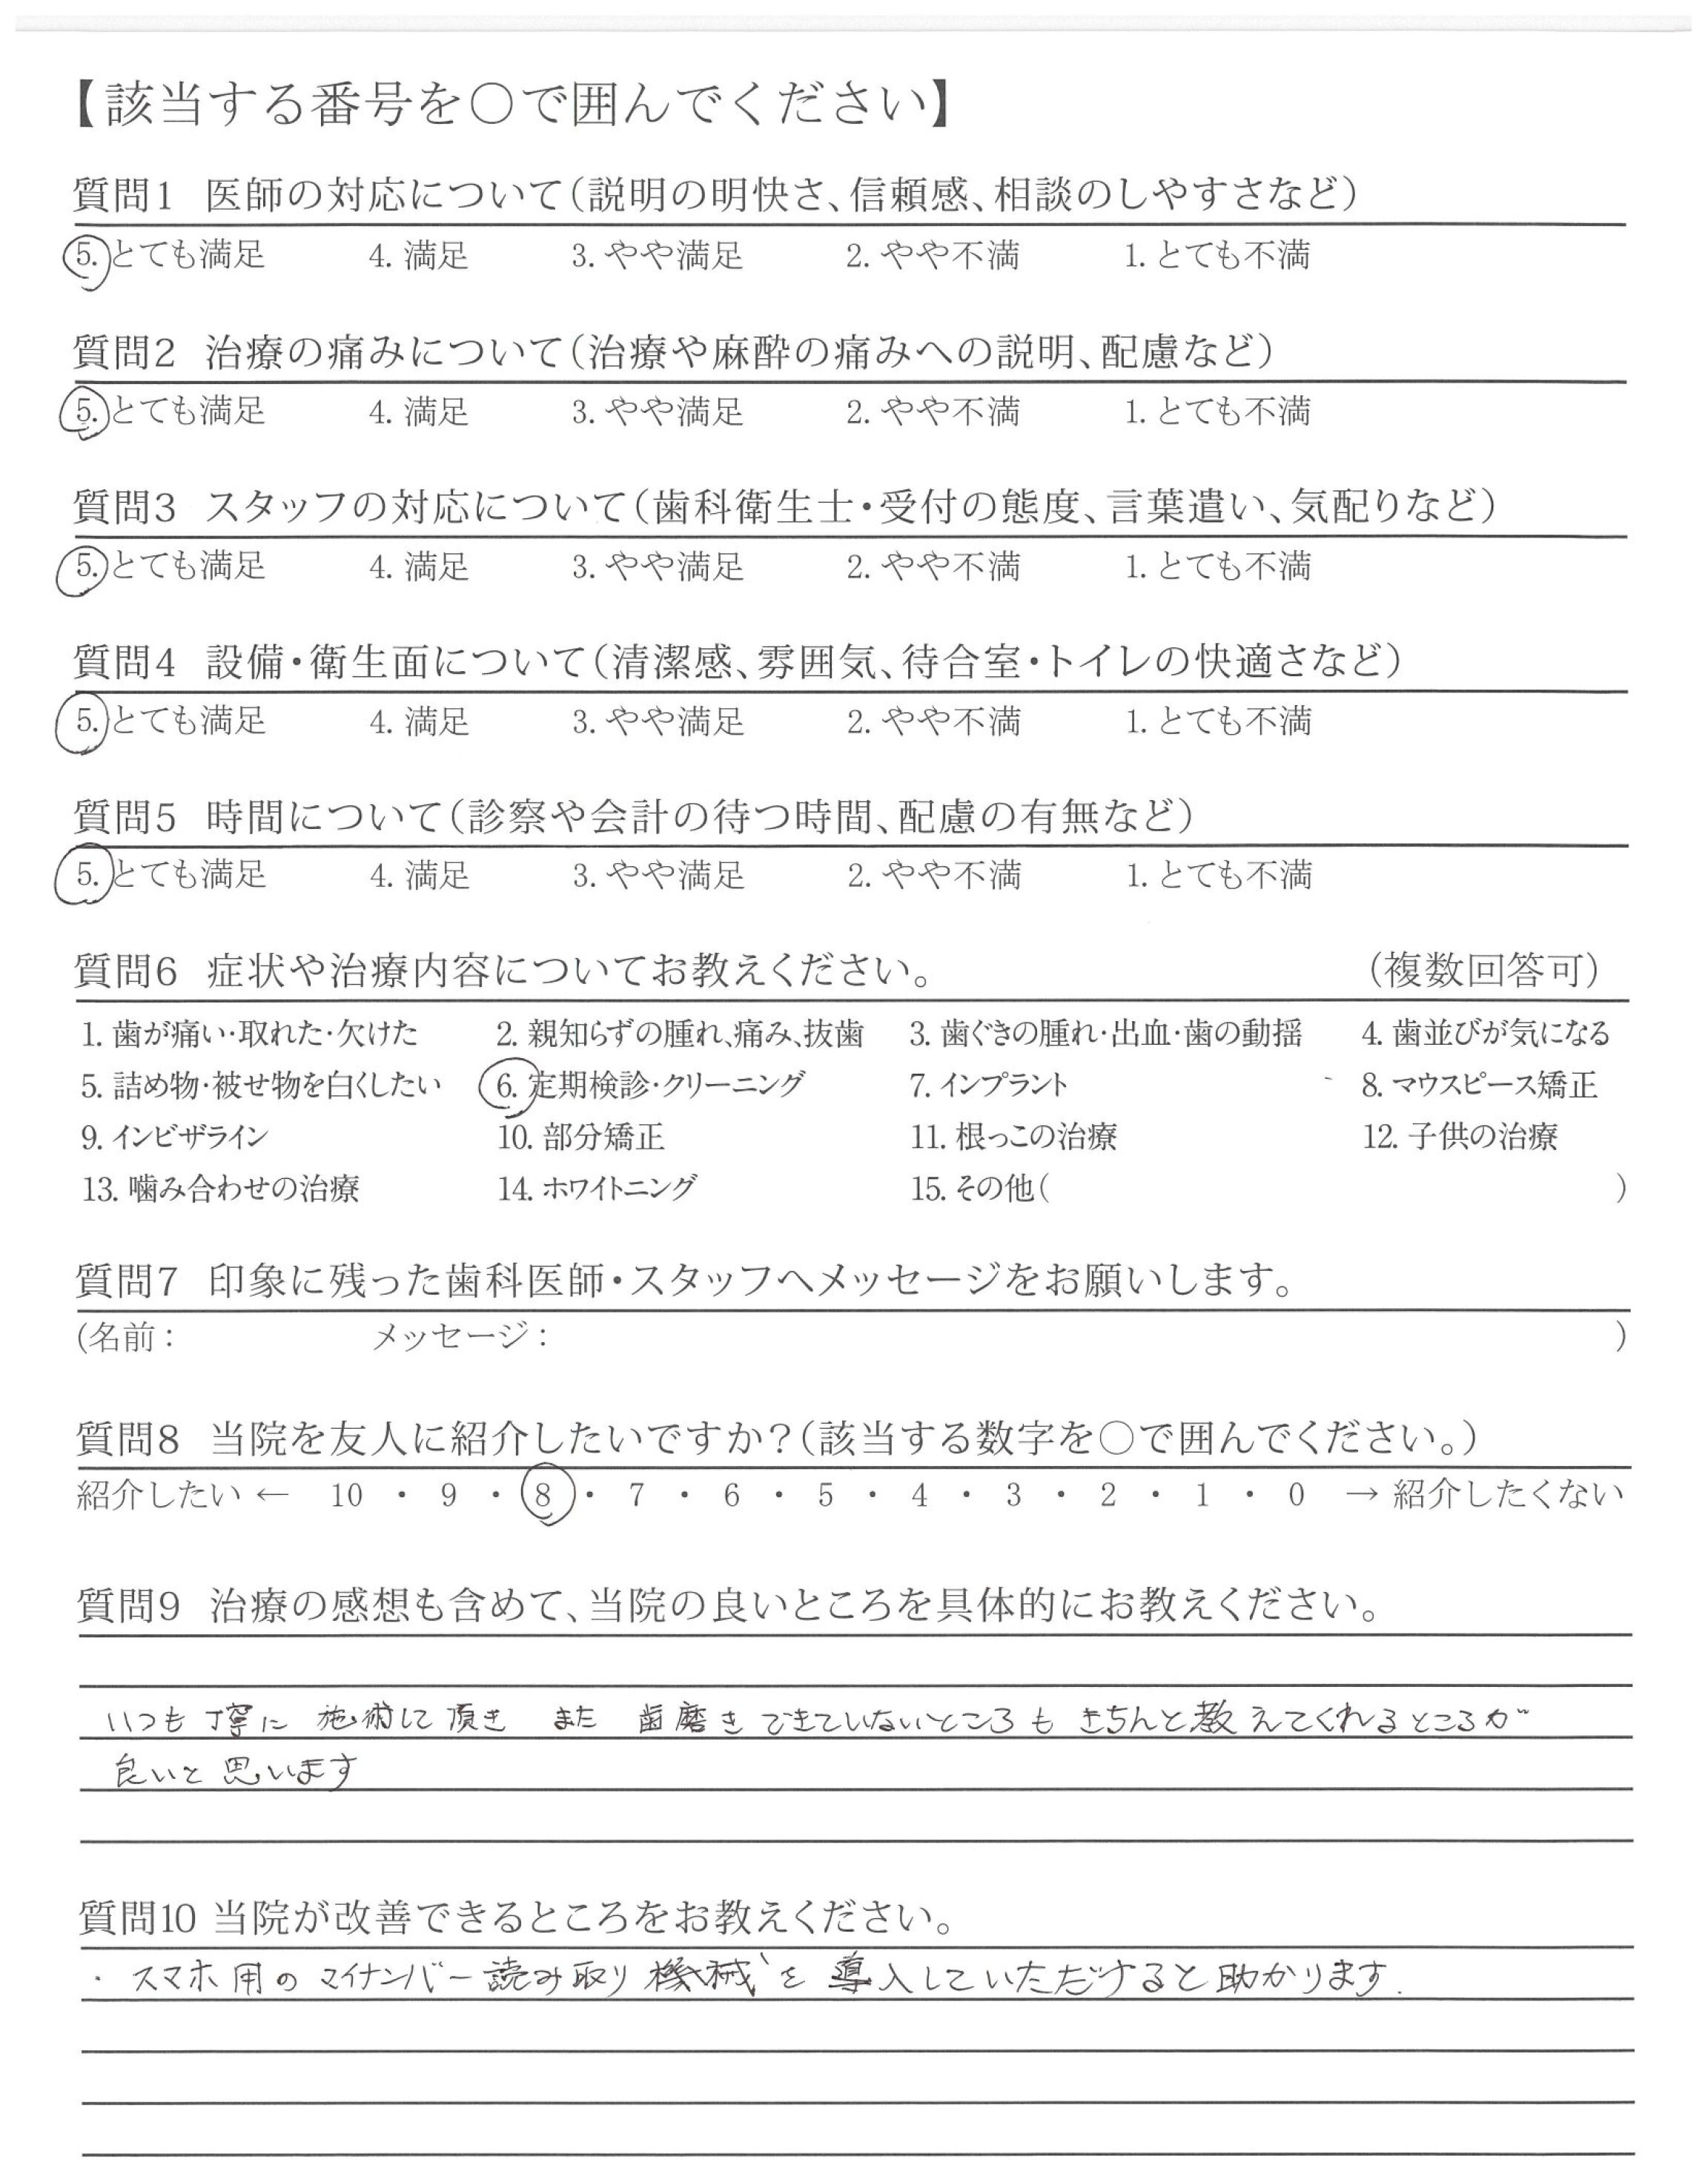 【該当する番号を○で囲んでください】
質問1 医師の対応について(説明の明快さ、信頼感、相談のしやすさなど)
5. とても満足 4. 満足 3. やや満足 2. やや不満 1. とても不満
質問2 治療の痛みについて(治療や麻酔の痛みへの説明、配慮など)
5. とても満足 4. 満足 3. やや満足 2. やや不満 1. とても不満
質問3 スタッフの対応について(歯科衛生士・受付の態度、言葉遣い、気配りなど)
5. とても満足 4. 満足 3. やや満足 2. やや不満 1. とても不満
質問4 設備・衛生面について(清潔感、雰囲気、待合室・トイレの快適さなど)
5. とても満足 4. 満足 3. やや満足 2. やや不満 1. とても不満
質問5 時間について(診察や会計の待つ時間、配慮の有無など)
5. とても満足 4. 満足 3. やや満足 2. やや不満 1. とても不満
質問6 症状や治療内容についてお教えください。 (複数回答可)
1. 歯が痛い・取れた・欠けた 2. 親知らずの腫れ、痛み、抜歯 3. 歯ぐきの腫れ・出血・歯の動揺 4. 歯並びが気になる
5. 詰め物・被せ物を白くしたい 6. 定期検診・クリーニング 7. インプラント 8. マウスピース矯正
9. インビザライン 10. 部分矯正 11. 根っこの治療 12. 子供の治療
13. 噛み合わせの治療 14. ホワイトニング 15. その他( )
質問7 印象に残った歯科医師・スタッフへメッセージをお願いします。
(名前: メッセージ: )
質問8 当院を友人に紹介したいですか?(該当する数字を○で囲んでください。)
紹介したい ← 10 ・ 9 ・ 8 ・ 7 ・ 6 ・ 5 ・ 4 ・ 3 ・ 2 ・ 1 ・ 0 → 紹介したくない
質問9 治療の感想も含めて、当院の良いところを具体的にお教えください。
いつも丁寧に 施術して頂き また 歯磨きできていないところも きちんと教えてくれるところが
良いと思います
質問10 当院が改善できるところをお教えください。
・スマホ用のマイナンバー読み取り機械を導入していただけると助かります.